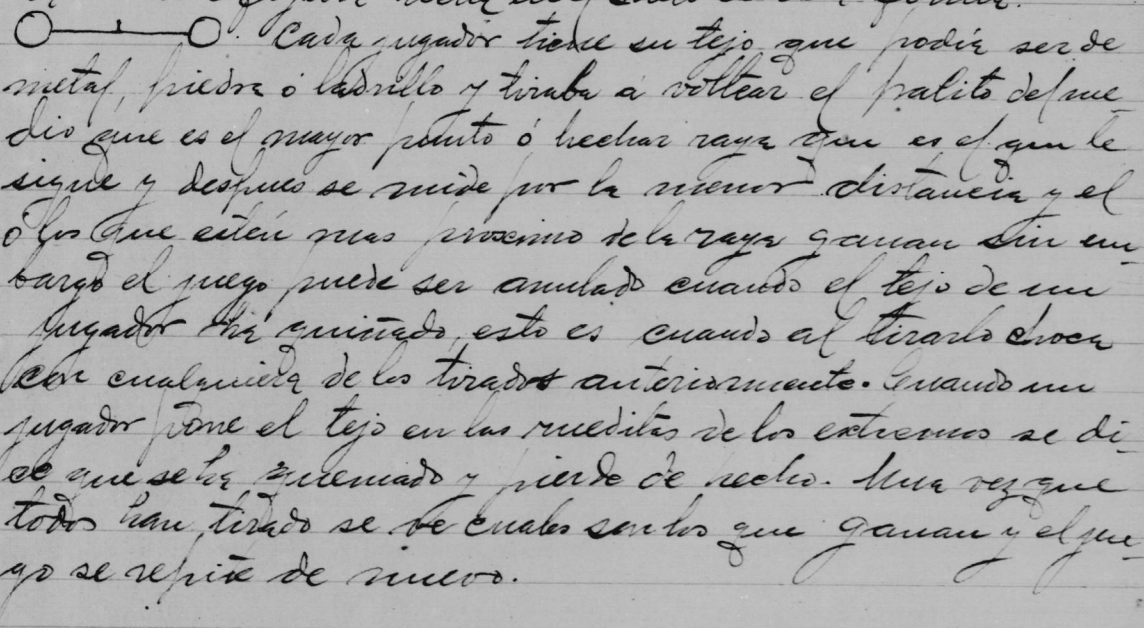 Cada jugador tiene su tejo que podia ser de
metal, piedra ó ladrillo y tiraba á voltear el palito del me-
dio que es el mayor punto ó hechar raya que es el que le
sigue y despues se mide por la menor distancia y el
ó los que estén mas proximo de la raya ganan sin em-
bargo el juego puede ser anulado cuando el tejo de un
jugador ha quiñado, esto es cuando al tirarlo choca
con cualquiera de los tirados anteriormente. Cuando un
jugador pone el tejo en las rueditas de los extremos se di-
ce que se ha quemado y pierde de hecho. Una vez que
todos han tirado se ve cuales son los que ganan y el jue-
go se repite de nuevo.